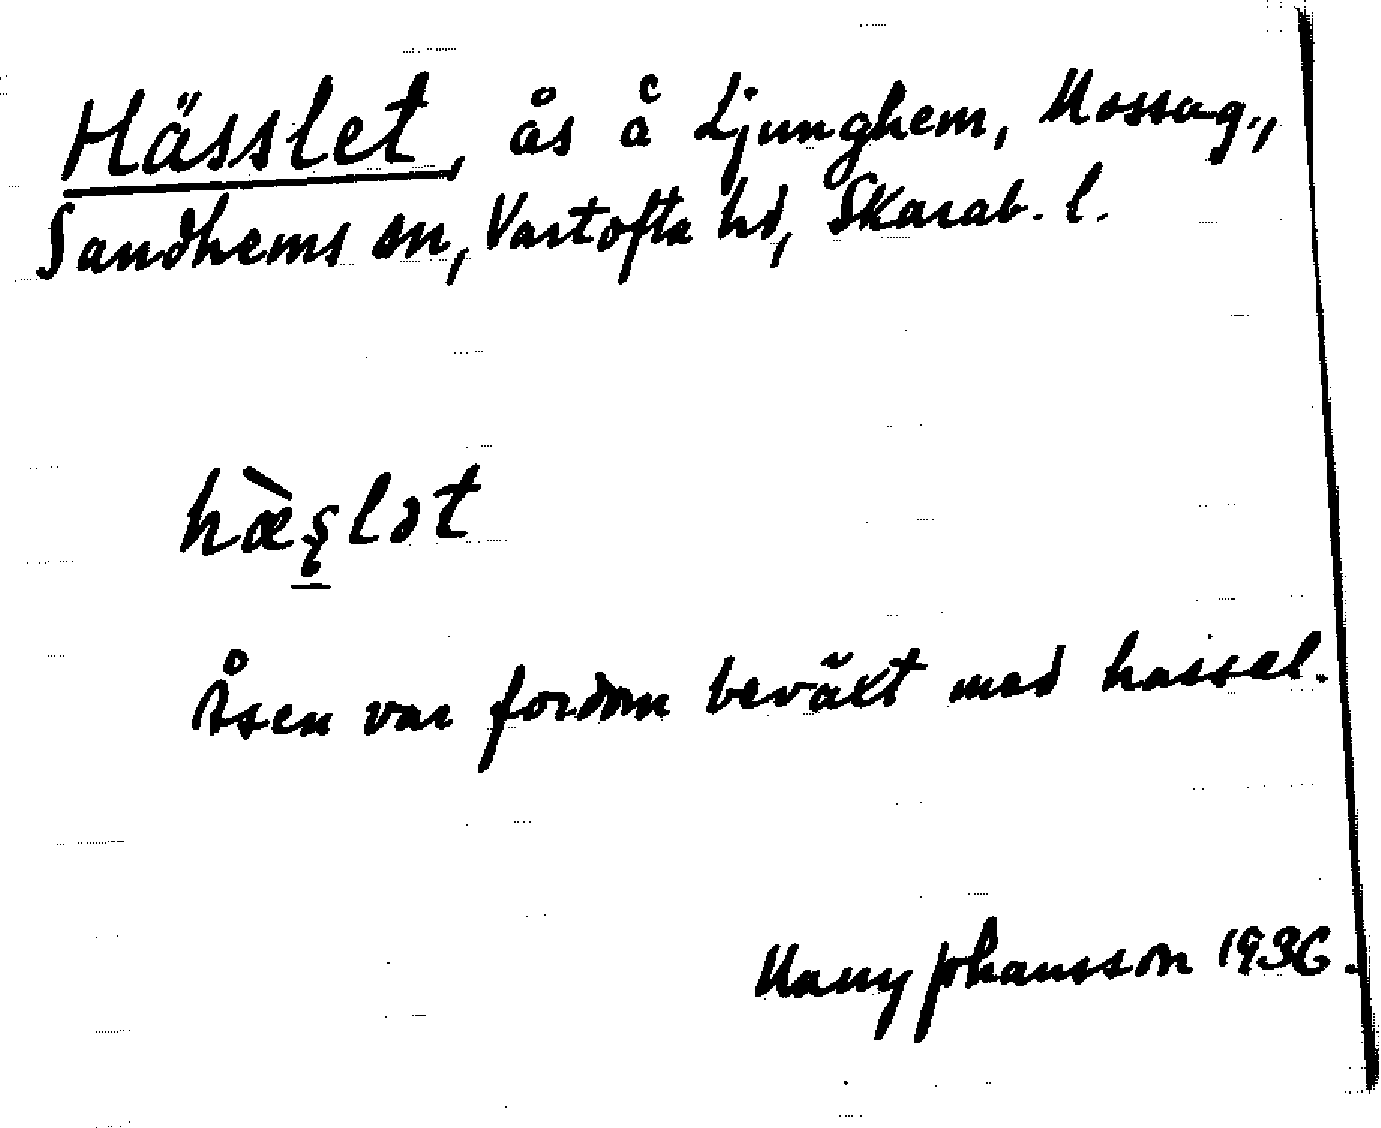 Hässlet, ås å Ljunghem, Mossag.,
Sandhems sn, Vartofta hd, Skarab. l.
hæ̀s̨lət
Åsen var fordom beväxt med hassel.
Nanny Johansson 1936.